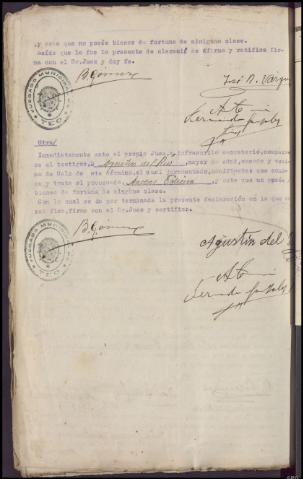 y este que no posée bienes de fortuna de ninguna clase.
Leída que le fue la presente se afirma y ratifica fir-
ma con el Sr.Juez y doy fe.
B Gómez
José R. Varq
JUZGADO MUNICIPAL
TEO
Ato
Fernando
Otra/
Inmediatamente ante el propio Juez e infrascrito secretario, compare-
ce el testigo, Agustín del Río, mayor de edad, casado y veci-
no de Calo de este término, el cual juramentado, manifiesta que cono-
ce y trata el procesado, y este que no posée
bienes de fortuna de ninguna clase.
Con lo cual se da por terminada la presente declaración en la que se
ratifica, firma con el Sr.Juez y certifico.
B Gómez
Agustín del
JUZGADO MUNICIPAL
TEO
Ato
Fernando